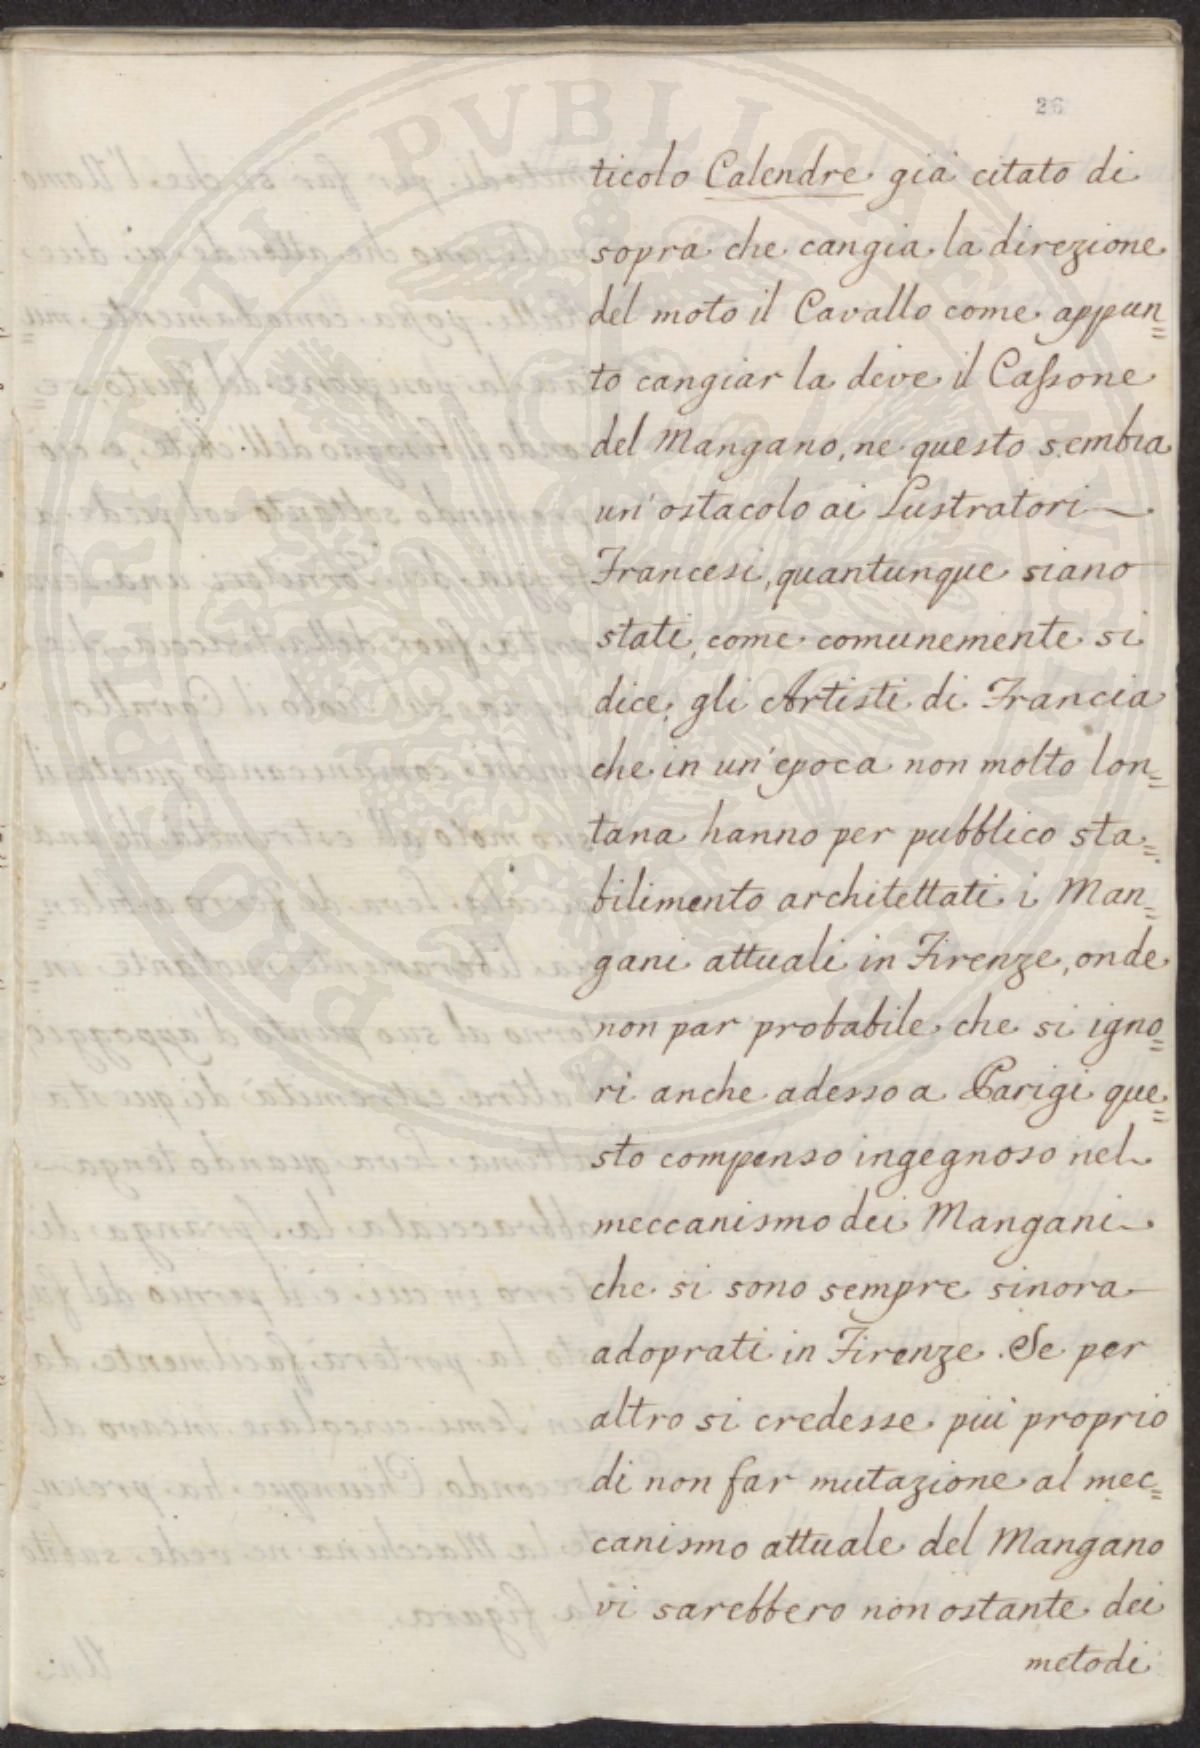 26
ticolo Calendre già citato di
sopra che cangia la direzione
del moto il Cavallo come appun=
to cangiar la deve il Caſsone
del Mangano, ne questo sembra
un'ostacolo ai Lustratori
Francesi, quantunque siano
stati, come comunemente si
dice, gli Artisti di Francia
che in un'epoca non molto lon=
tana hanno per pubblico sta=
bilimento architettati i Man=
gani attuali in Firenze, onde
non par probabile che si igno=
ri anche adesso a Parigi que=
sto compenso ingegnoso nel
meccanismo dei Mangani
che si sono sempre sinora
adoprati in Firenze. Se per
altro si credesse più proprio
di non far mutazione al mec=
canismo attuale del Mangano
vi sarebbero non ostante dei
metodi